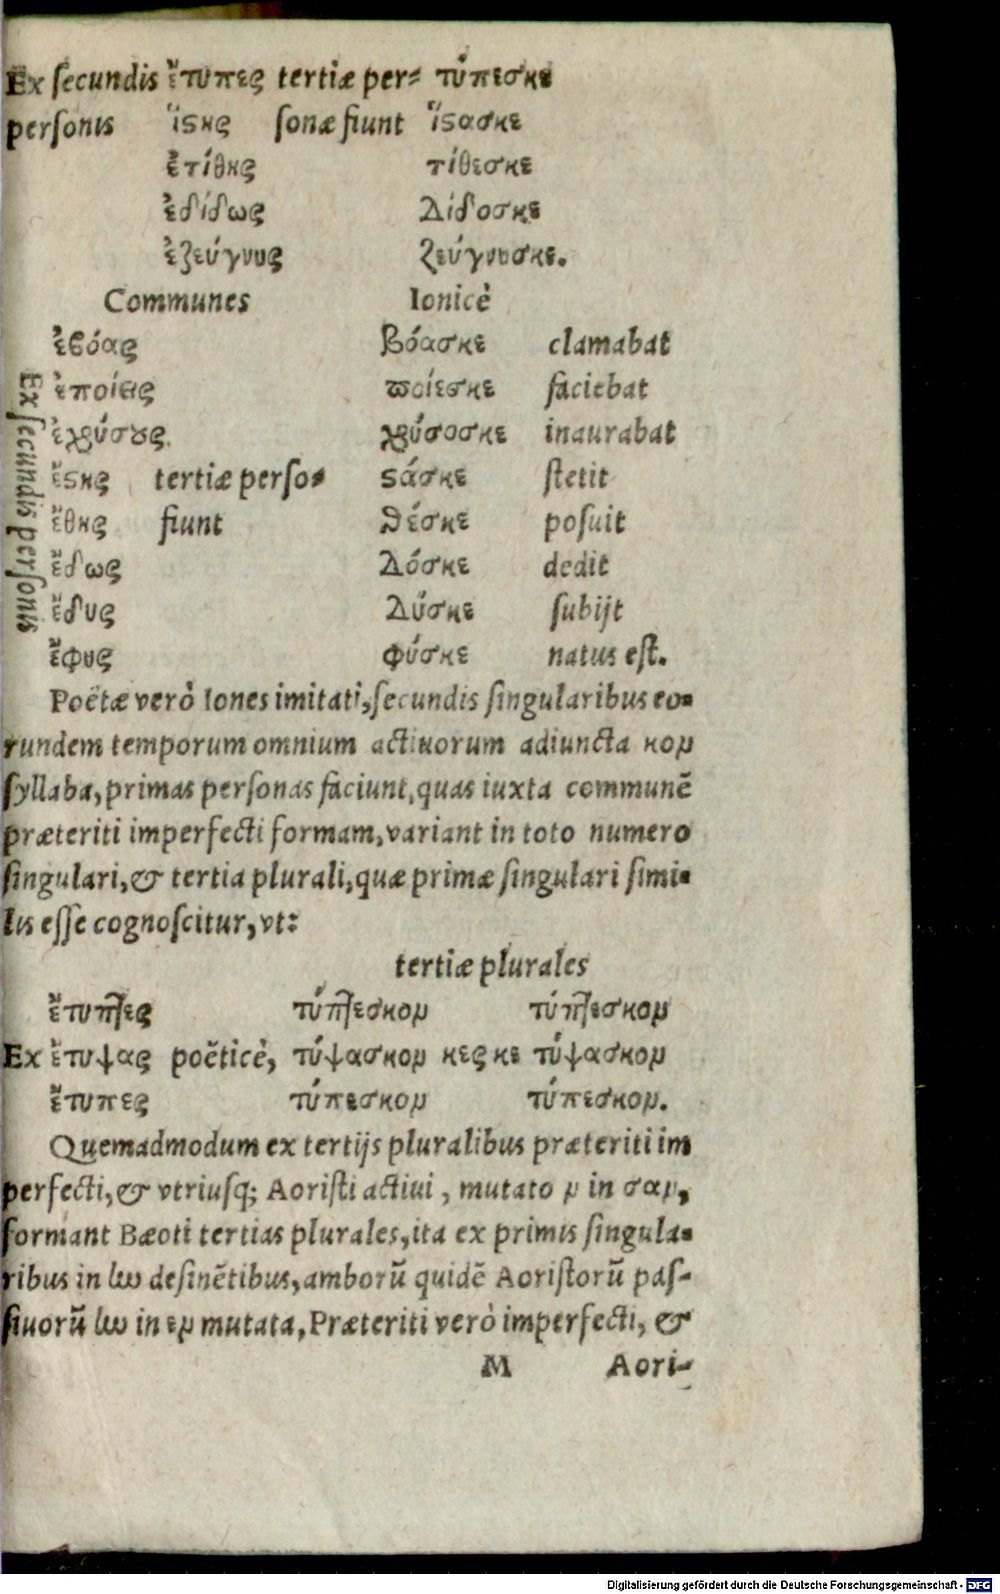 Ex secundis ἔτυπες tertiæ per- τύπεσκε
personis ἵϛης sonæ fiunt ἵϛασκε
ἐτίθης τίθεσκε
ἐδίδως δίδοσκε
ἐζεύγνυς ζεύγνυσκε.
Communes Ionicè
ἐβόας βόασκε clamabat
ἐποίεις ποίεσκε faciebat
ἐχρύσους χρύσοσκε inaurabat
Ex secundis personis
ἔϛης tertiæ perso- ϛάσκε stetit
ἔθης fiunt θέσκε posuit
ἔδως δόσκε dedit
ἔδυς δύσκε subijt
ἔφυς φύσκε natus est.
Poëtæ verò Iones imitati, secundis singularibus eo-
rundem temporum omnium actiuorum adiuncta κον
syllaba, primas personas faciunt, quas iuxta communẽ
præteriti imperfecti formam, variant in toto numero
singulari, & tertia plurali, quæ primæ singulari simi-
lis esse cognoscitur, vt:
tertiæ plurales
ἔτυπτες τύπτεσκον τύπτεσκον
Ex ἔτυψας poëticè, τύψασκον κες κε τύψασκον
ἔτυπες τύπεσκον τύπεσκον.
Quemadmodum ex tertijs pluralibus præteriti im
perfecti, & vtriusq; Aoristi actiui, mutato ν in σαν,
formant Bæoti tertias plurales, ita ex primis singula-
ribus in ην desinẽtibus, amborũ quidẽ Aoristorũ pas-
siuorũ ην in εν mutata, Præteriti verò imperfecti, &
M Aori-
Digitalisierung gefördert durch die Deutsche Forschungsgemeinschaft - DFG